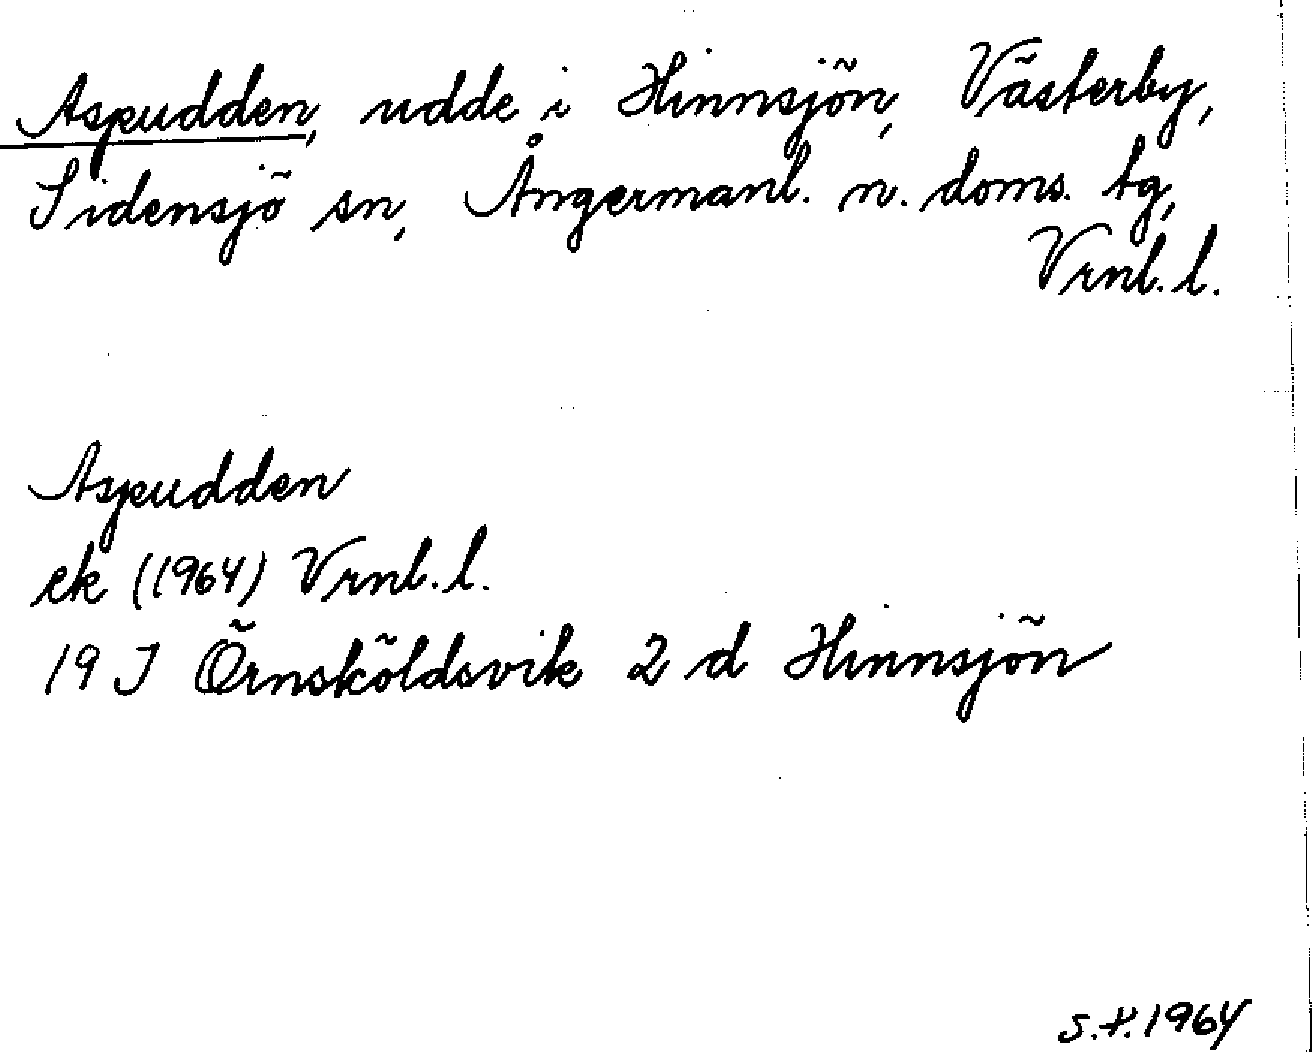 Aspudden, udde i Hinnsjön, Västerby,
Sidensjö sn, Ångermanl. n. doms. tg,
Vrnl. l.
Aspudden
ek (1964) Vrnl. l.
19 J Örnsköldsvik 2 d Hinnsjön
1964